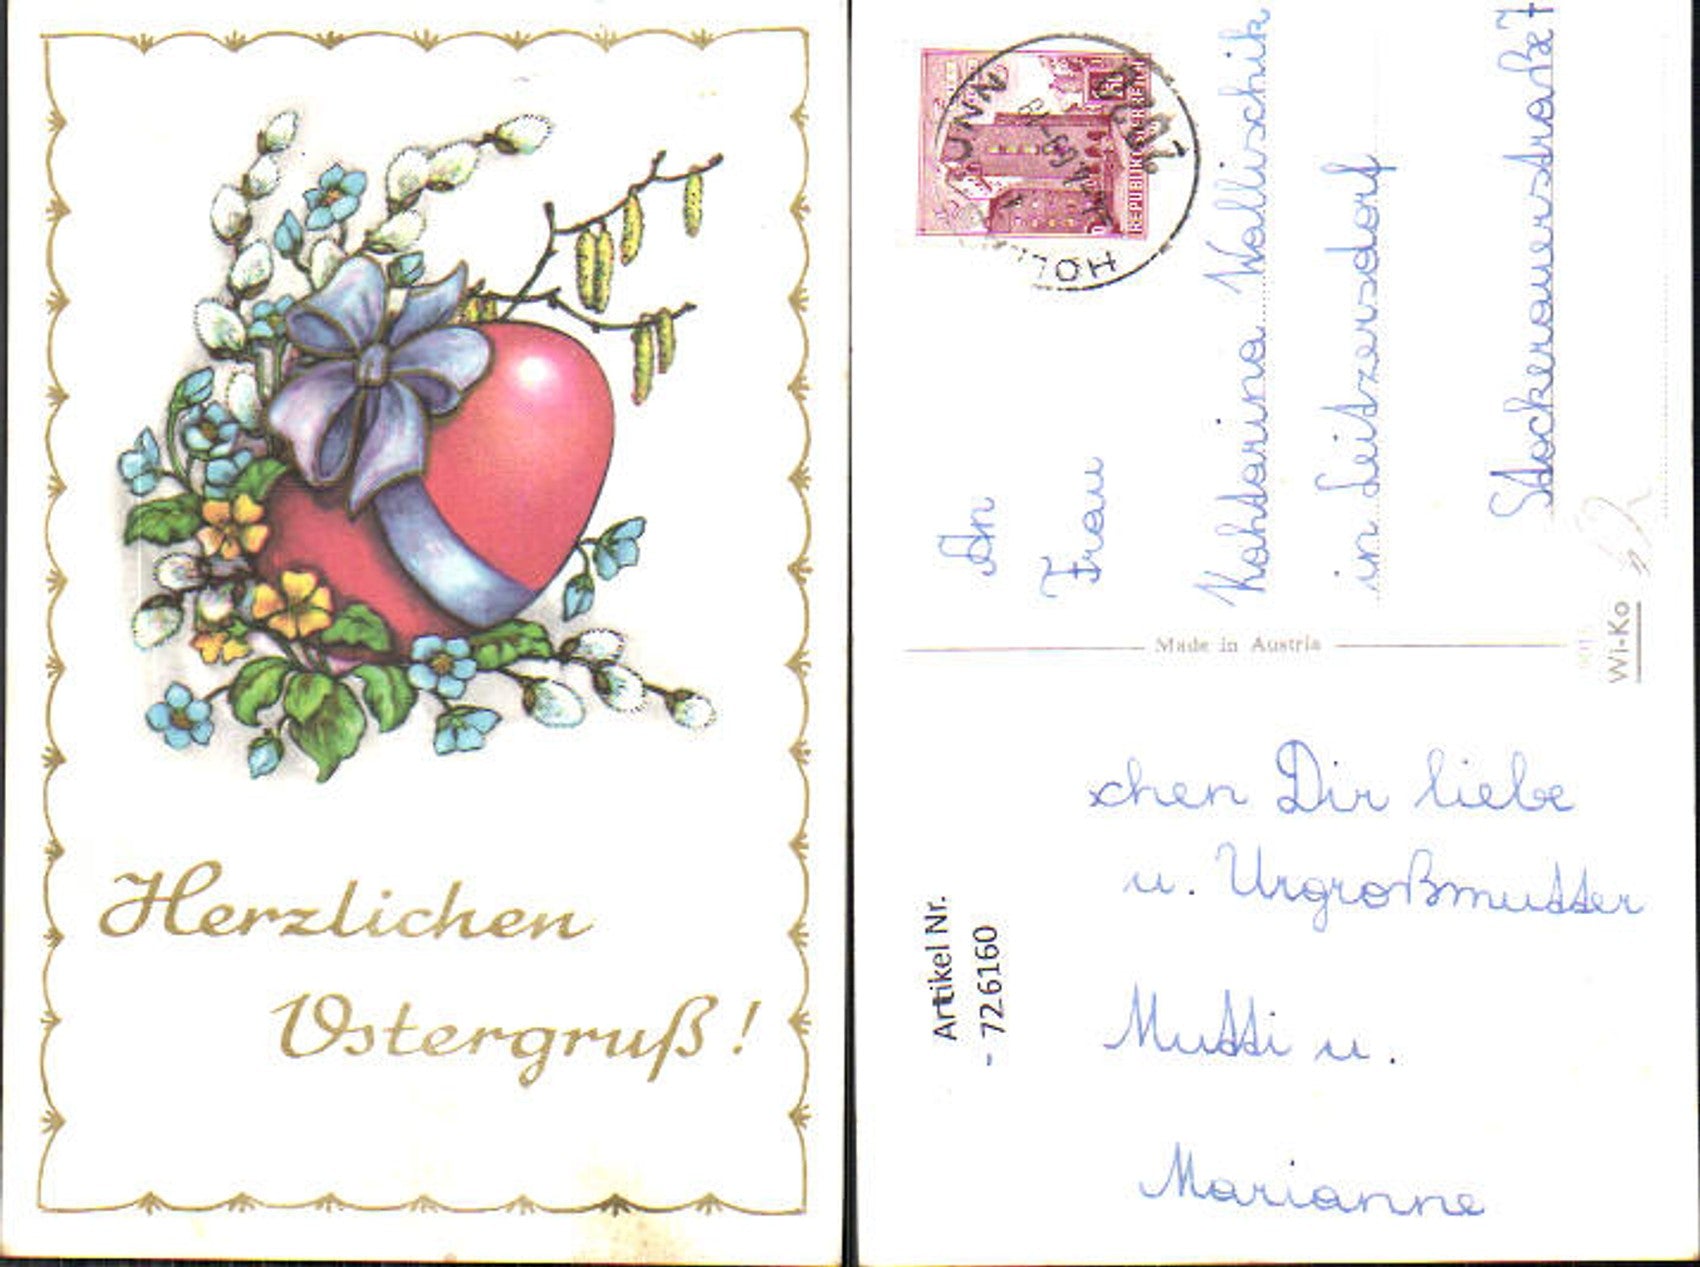 Herzlichen
Ostergruß!
REPUBLIK ÖSTERREICH
An
Frau
Katharina Wollischik
in Leitzersdorf
Stockerauerstraße 7
Made in Austria
Wi-Ko
schen Dir liebe
u. Urgroßmutter
Mutti u.
Marianne
Artikel Nr.
- 726160